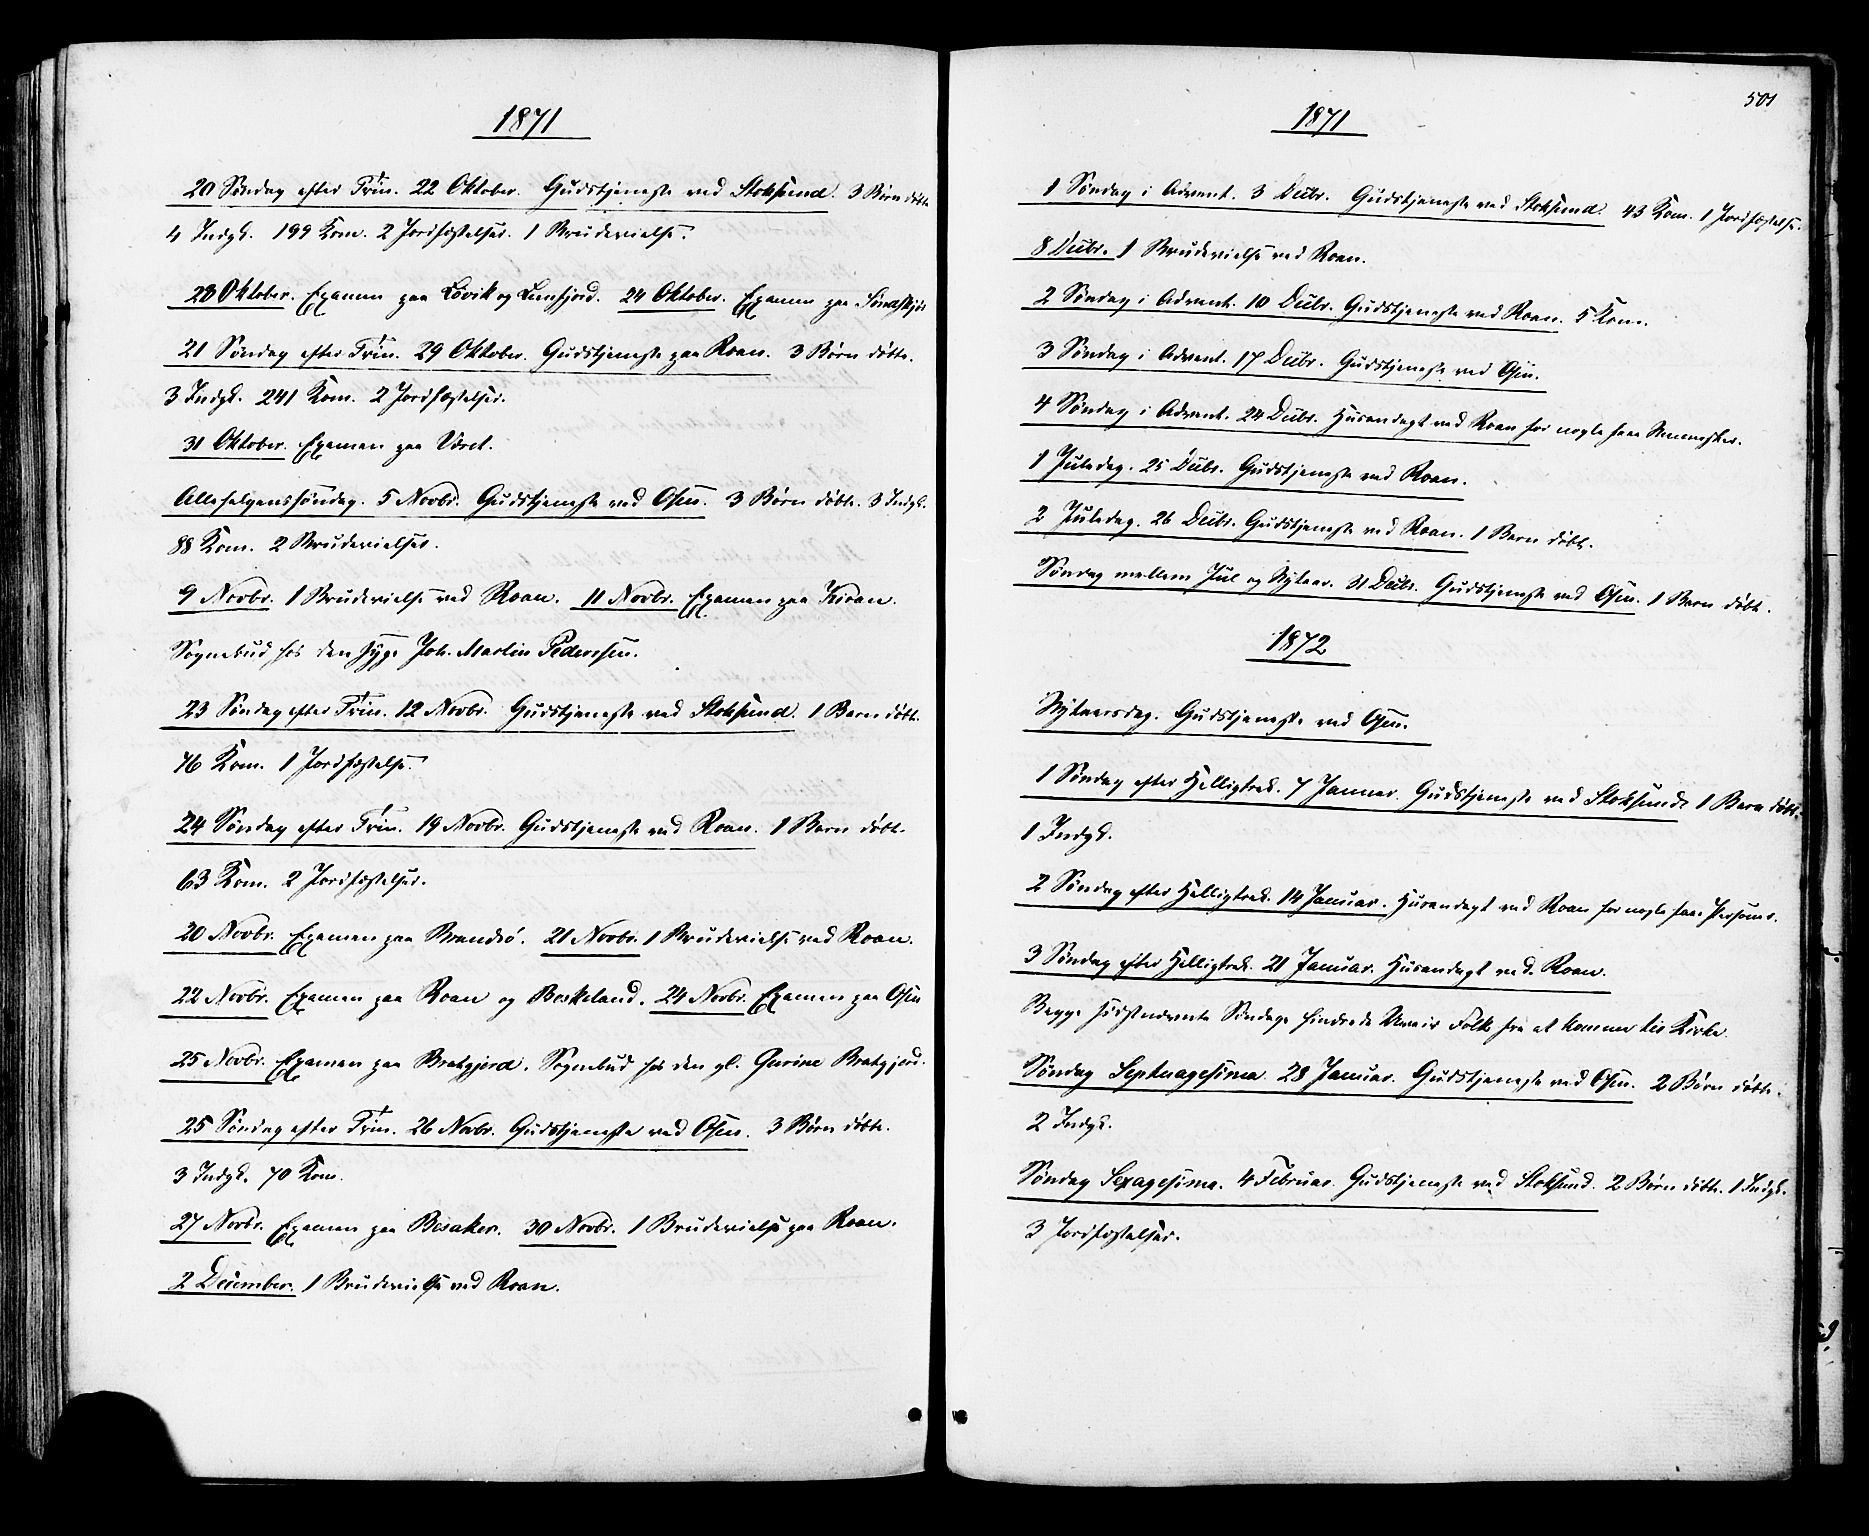 1871
20 Søndag efter Trin. 22 Oktober. Gudstjeneste ved Stoksund. 3 Børn døbte
4 Indgk. 199 Kom. 2 Jordfæstelser. 1 Brudevielse.
23 Oktober. Examen paa Løvik og Lemfjord. 24 Oktober. Examen paa
21 Søndag efter Trin. 29 Oktober. Gudstjeneste paa Roan. 3 Børn døbte.
3 Indgk. 241 Kom. 2 Jordfæstelser.
31 Oktober. Examen paa Været.
Allehelgenssøndag. 5 Novbr. Gudstjeneste ved Osen. 3 Børn døbte. 3 Indgk.
88 Kom. 2 Brudevielser.
9 Novbr. 1 Brudevielse ved Roan. 11 Novbr. Examen paa Kiran.
Sognebud hos den syge Joh. Martin Pedersen.
23 Søndag efter Trin. 12 Novbr. Gudstjeneste ved Stoksund. 1 Barn døbt.
76 Kom. 1 Jordfæstelse.
24 Søndag efter Trin. 19 Novbr. Gudstjeneste ved Roan. 1 Barn døbt.
63 Kom. 2 Jordfæstelser.
20 Novbr. Examen paa Brandsø. 21 Novbr. 1 Brudevielse ved Roan.
22 Novbr. Examen paa Roan og Beskeland. 24 Novbr. Examen paa Osen
25 Novbr. Examen paa Bratgjerd. Sognebud hos den gl. Gurine Bratgjerd.
25 Søndag efter Trin. 26 Novbr. Gudstjeneste ved Osen. 3 Børn døbte.
3 Indgk. 70 Kom.
27 Novbr. Examen paa Besaker. 30 Novbr. 1 Brudevielse paa Roan.
2 December. 1 Brudevielse ved Roan.
501
1871
1 Søndag i Advent. 3 Decbr. Gudstjeneste ved Stoksund. 43 Kom. 1 Jordfæstelse.
8 Decbr. 1 Brudevielse ved Roan.
2 Søndag i Advent. 10 Decbr. Gudstjeneste ved Roan. 5 Kom.
3 Søndag i Advent. 17 Decbr. Gudstjeneste ved Osen.
4 Søndag i Advent. 24 Decbr. Husandagt ved Roan for nogle faae Mennesker.
1 Juledag. 25 Decbr. Gudstjeneste ved Roan.
2 Juledag. 26 Decbr. Gudstjeneste ved Roan. 1 Barn døbt.
Søndag mellem Jul og Nytaar. 31 Decbr. Gudstjeneste ved Osen. 1 Barn døbt.
1872
Nytaarsdag. Gudstjeneste ved Osen.
1 Søndag efter Helligtrek. 7 Januar. Gudstjeneste ved Stoksund. 1 Barn døbt.
1 Indgk.
2 Søndag efter Helligtrek. 14 Januar. Husandagt ved Roan for nogle faae Personer.
3 Søndag efter Helligtrek. 21 Januar. Husandagt ved Roan.
Begge sidstnævnte Søndage hindrede Uveir Folk fra at komme til Kirke.
Søndag Septuagesima. 28 Januar. Gudstjeneste ved Osen. 2 Børn døbte.
2 Indgk.
Søndag Sexagesima. 4 Februar. Gudstjeneste ved Stoksund. 2 Børn døbte. 1 Indgk.
3 Jordfæstelser.